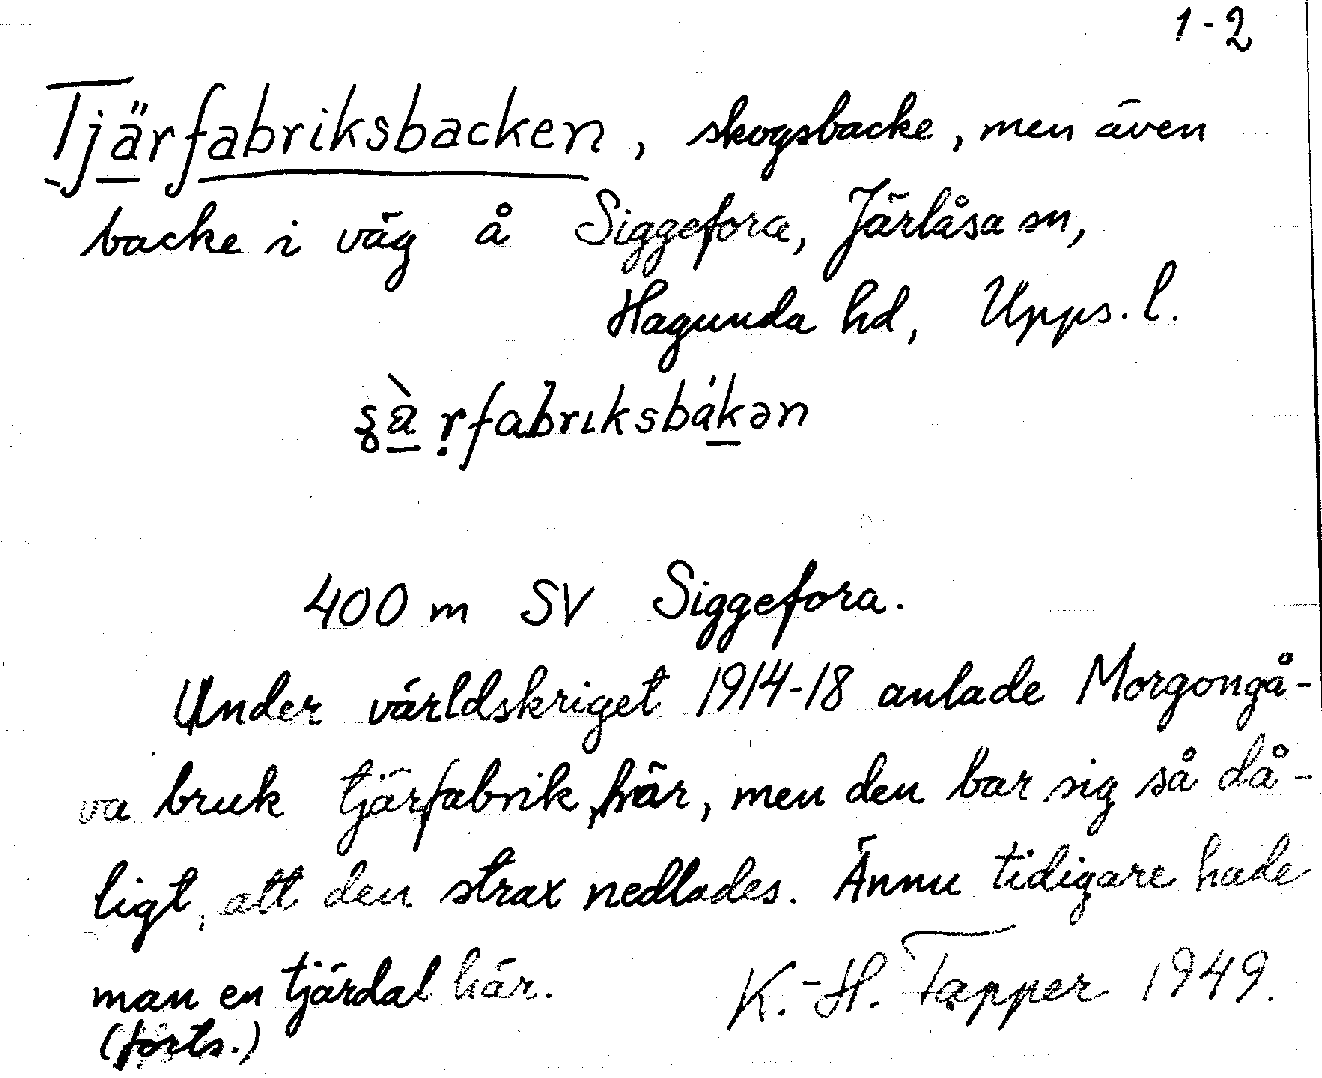 1-2
Tjärfabriksbacken, skogsbacke, men även
backe i väg å Siggefora, Järlåsa sn,
Hagunda hd, Upps. l.
400 m SV Siggefora.
Under världskriget 1914-18 anlade Morgongå-
va bruk tjärfabrik här, men den bar sig så då-
ligt, att den strax nedlades. Ännu tidigare hade
man en tjärdal här. K.-H. Tapper 1949.
(forts.)